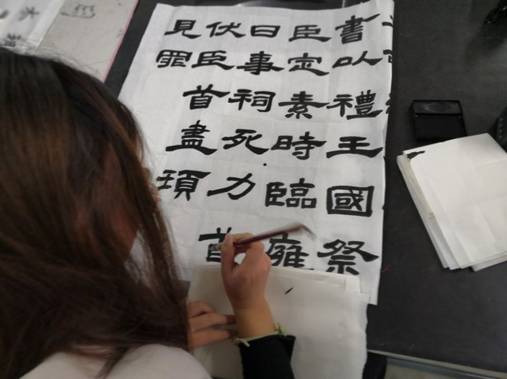 書以禮王國祭
臣定素時臨雍
日事祠死力
伏臣首盡頊
見罪